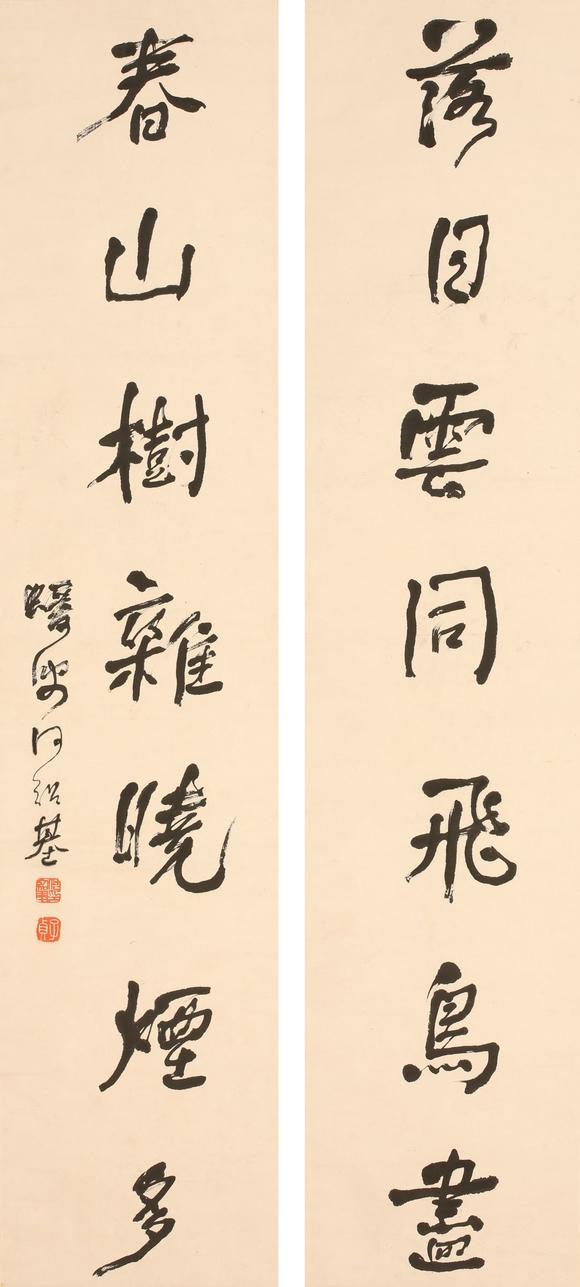 落日雲同飛鳥盡
春山樹雜曉煙多
蝯叟何紹基
子貞